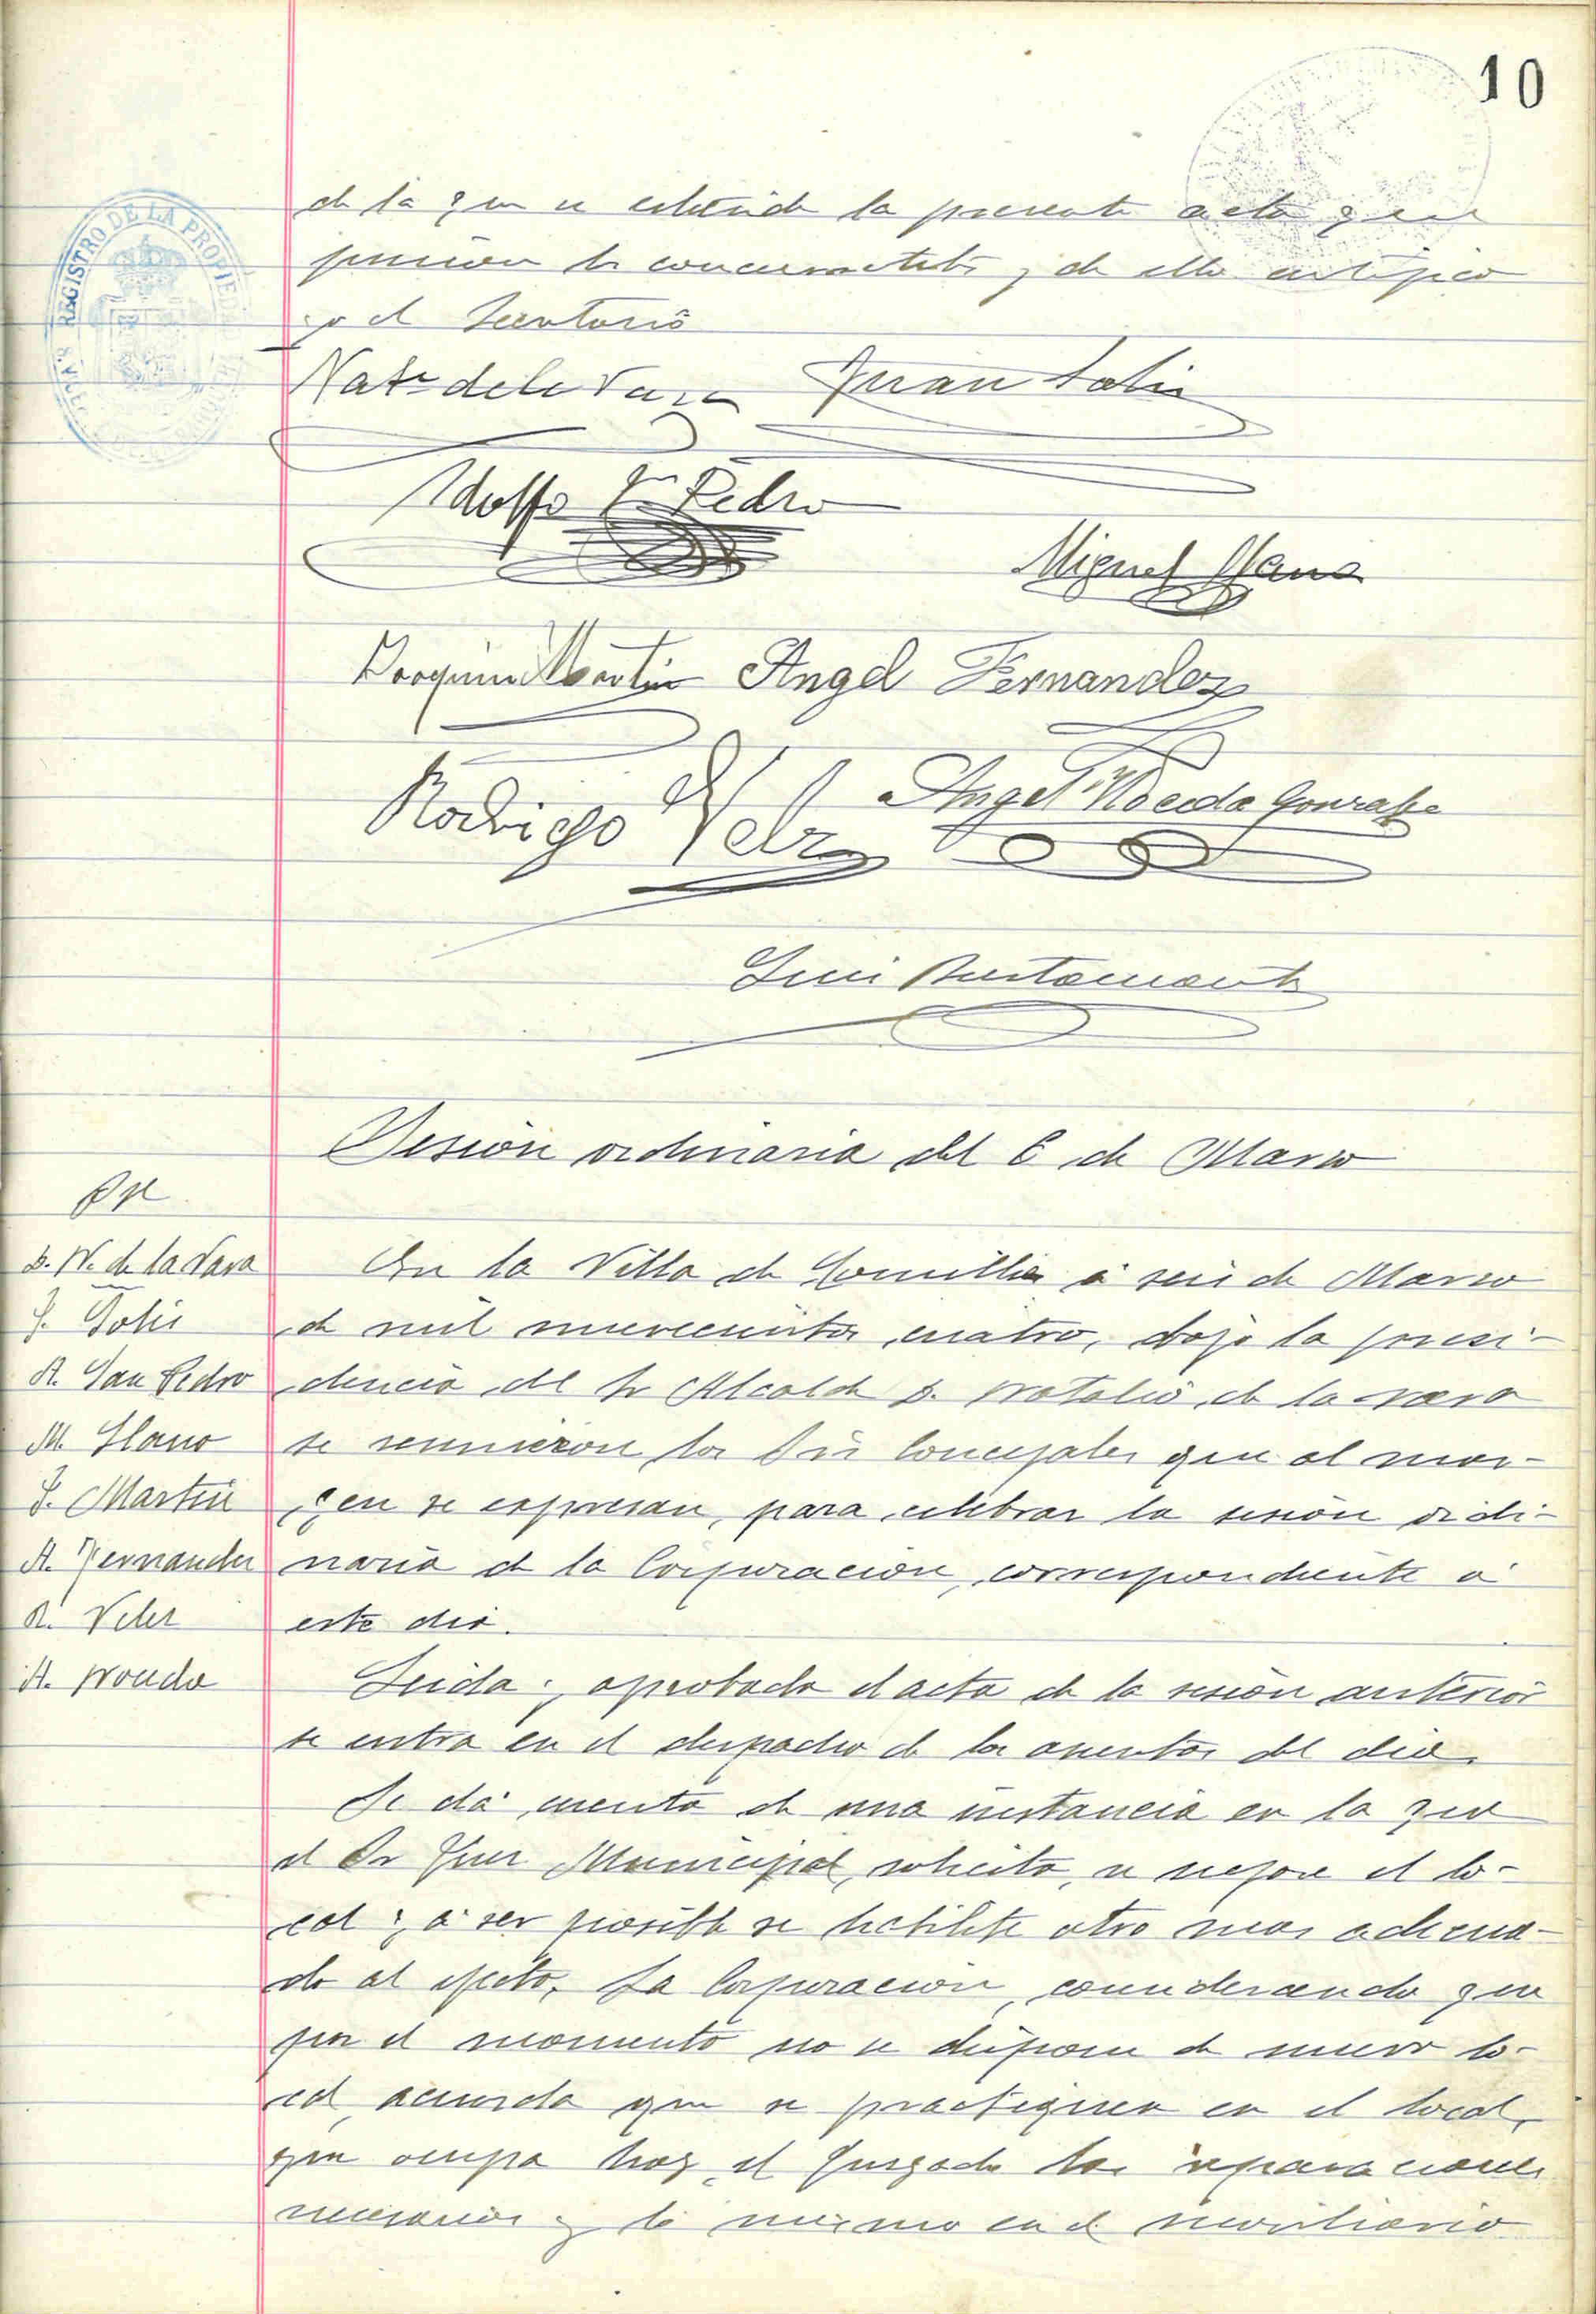 10
de la que se extiende la presente acta que
firman los concurrentes, de ello certifico
yo el Secretario
Nat. de la Vara Juan Solis
Adolfo Sn Pedro
Miguel Llano
Joaquin Martin Angel Fernandez
Rodrigo Velez Angel Noceda Gonzalez
Bustamante
Sesión ordinaria del 6 de Marzo
D. N. de la Vara
J. Solis
A. San Pedro
M. Llano
J. Martin
A. Fernandez
R. Velez
A. Noceda
En la Villa de Comillas á seis de Marzo
de mil novecientos cuatro, bajo la presi-
dencia del Sr Alcalde D. Natalio de la Vara
se reunieron los Srs Concejales que al mar-
gen se expresan, para celebrar la sesión ordi-
naria de la Corporacion, correspondiente á
este dia.
Leida y aprobada el acta de la sesión anterior
se entra en el despacho de los asuntos del dia.
Se dá cuenta de una instancia en la que
el Sr Juez Municipal, solicita, se mejore el lo-
cal y á ser posible se habilite otro mas adecua-
do al efecto. La Corporacion, considerando que
por el momento no se dispone de nuevo lo-
cal, acuerda que se practiquen en el local
que ocupa hoy el Juzgado las reparaciones
necesarias y lo mismo en el mobiliario
REGISTRO DE LA PROPIEDAD